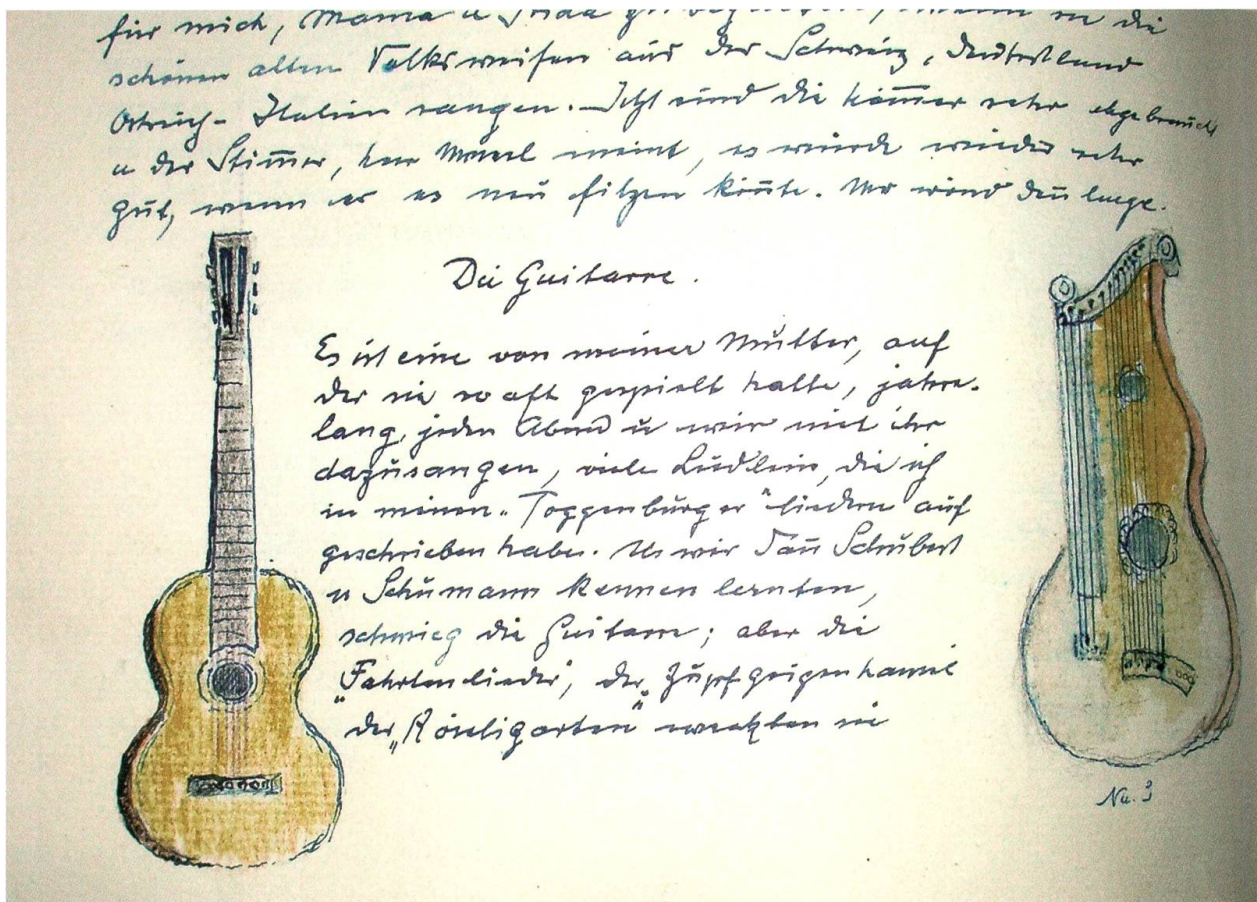 für mich, Mama u
schönen alten Volksweisen aus der Schweiz, Deutschland
Östreich- Italien sangen. Jetzt sind die Häm̄er sehr abgebraucht
u der Stim̄er, herr meint, es würde wieder sehr
gut, wenn er es neu filzen kön̄te. Wer wird den̄
Die Guitarre.
Es ist eine von meiner Mutter, auf
der sie so oft gespielt hatte, jahre-
lang, jeden Abend u wir mit ihr
dazusangen, viele Liedlein, die ich
in meinen "Toggenburger" liedern auf
geschrieben habe. Als wir dan̄ Schubert
u Schumann kennen lernten,
schwieg die Guitarre; aber die
"Fahrtenlieder", der Zupfgeigenhansel
der "Röseligarten" weckten sie
No. 3